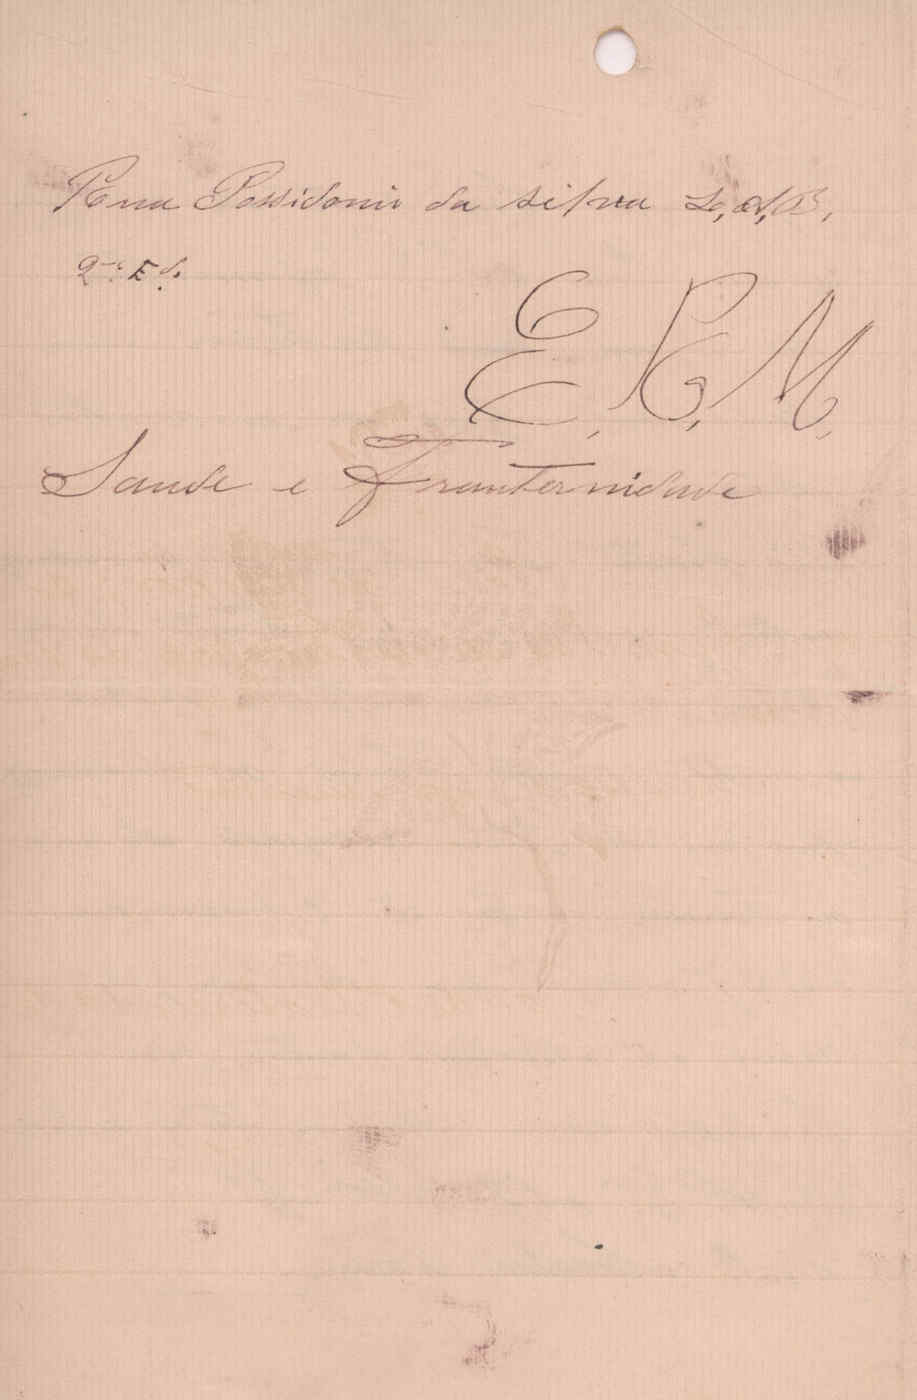 Rua Possidonio da silva L, d, B,
2º E d.
E. R. M,
Saude e Fraunternidade